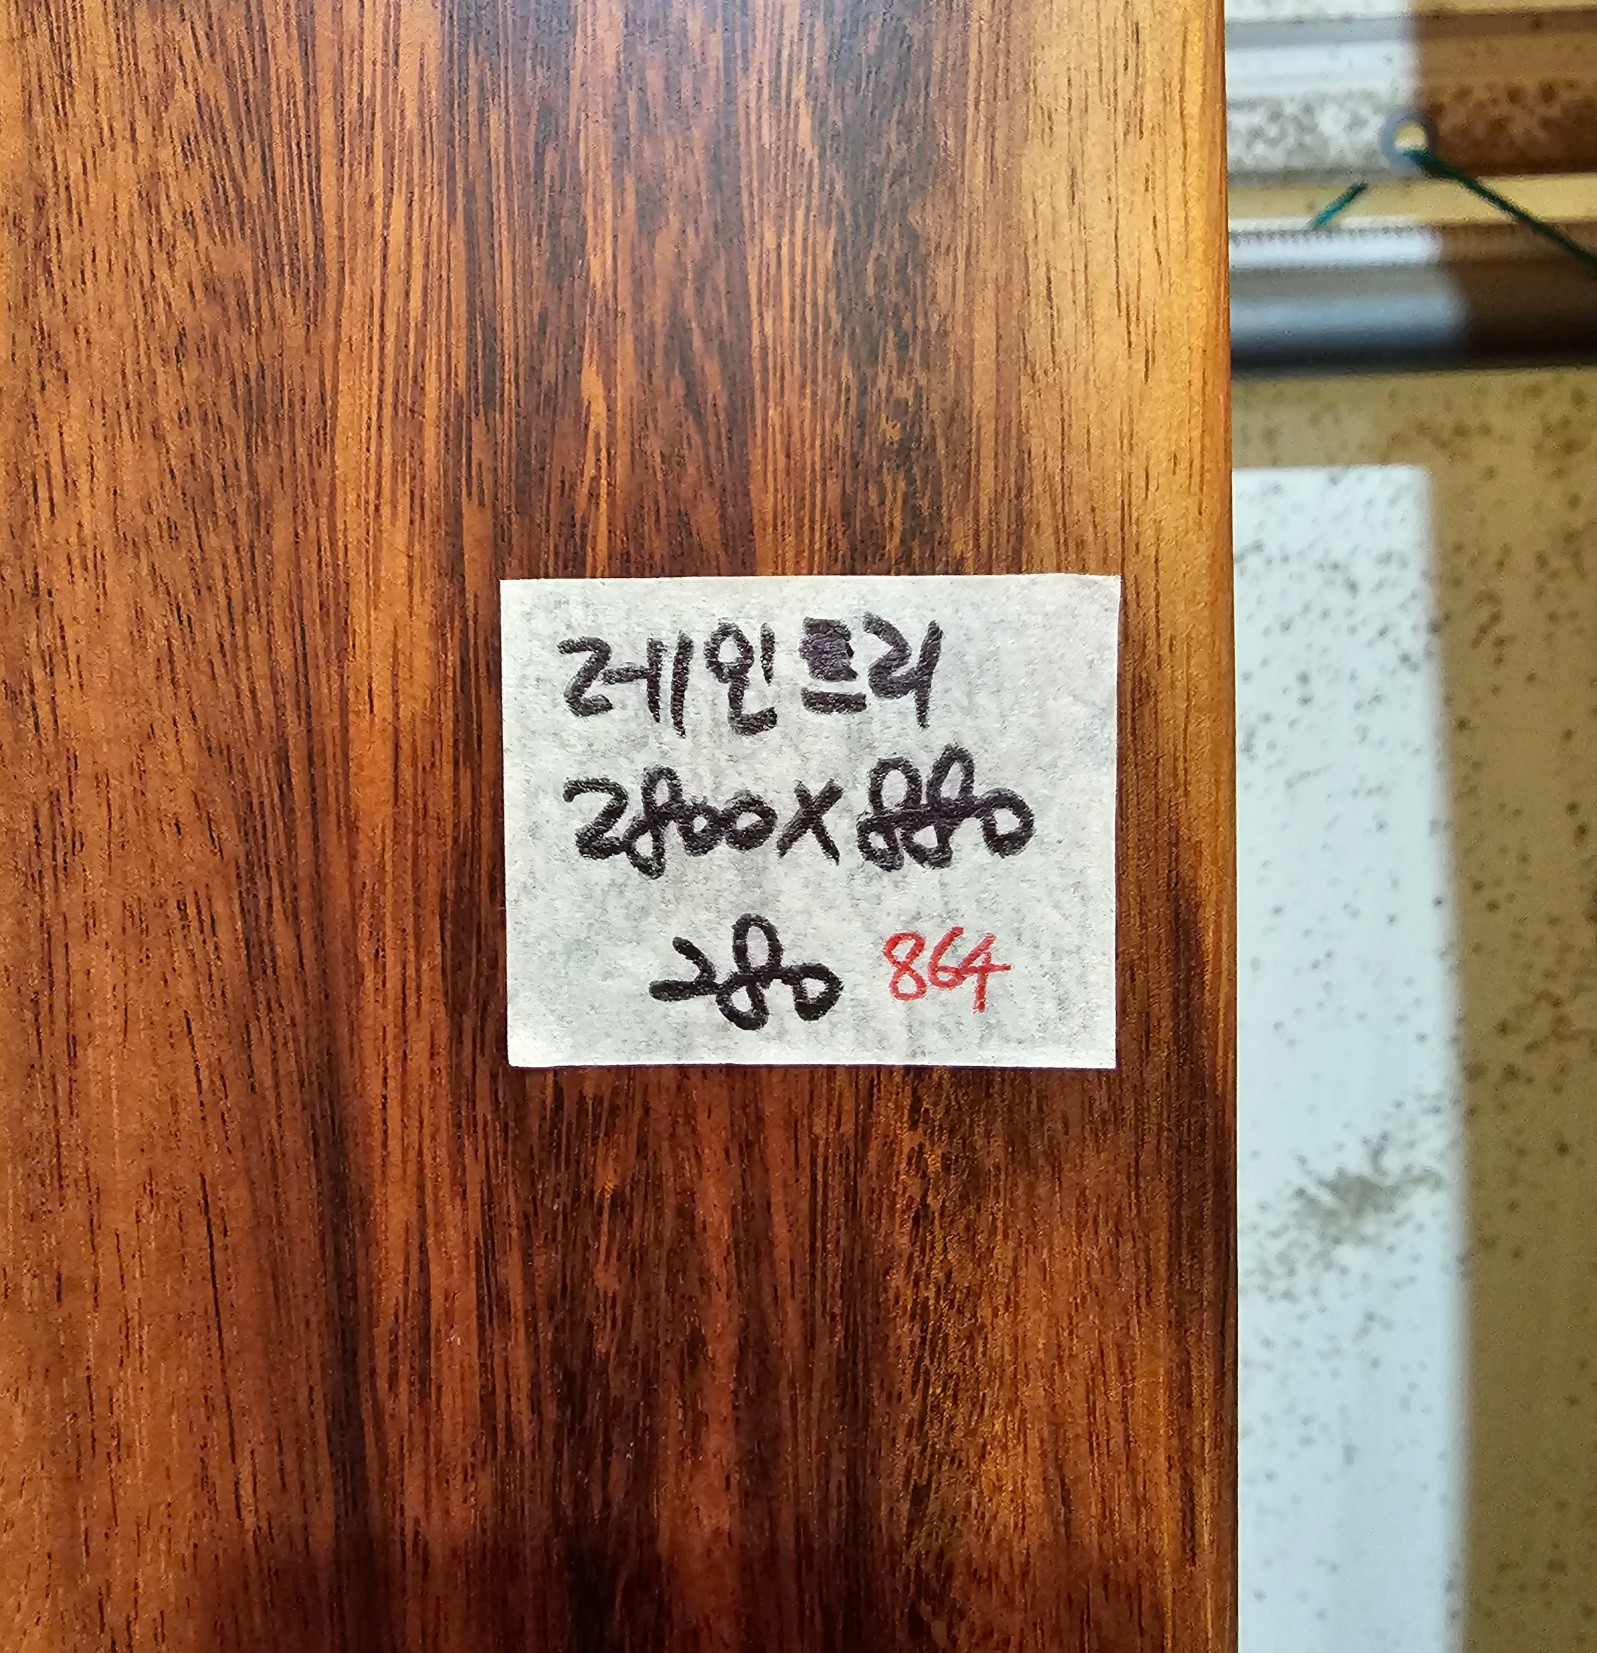 레인트리
2800X880
280 864